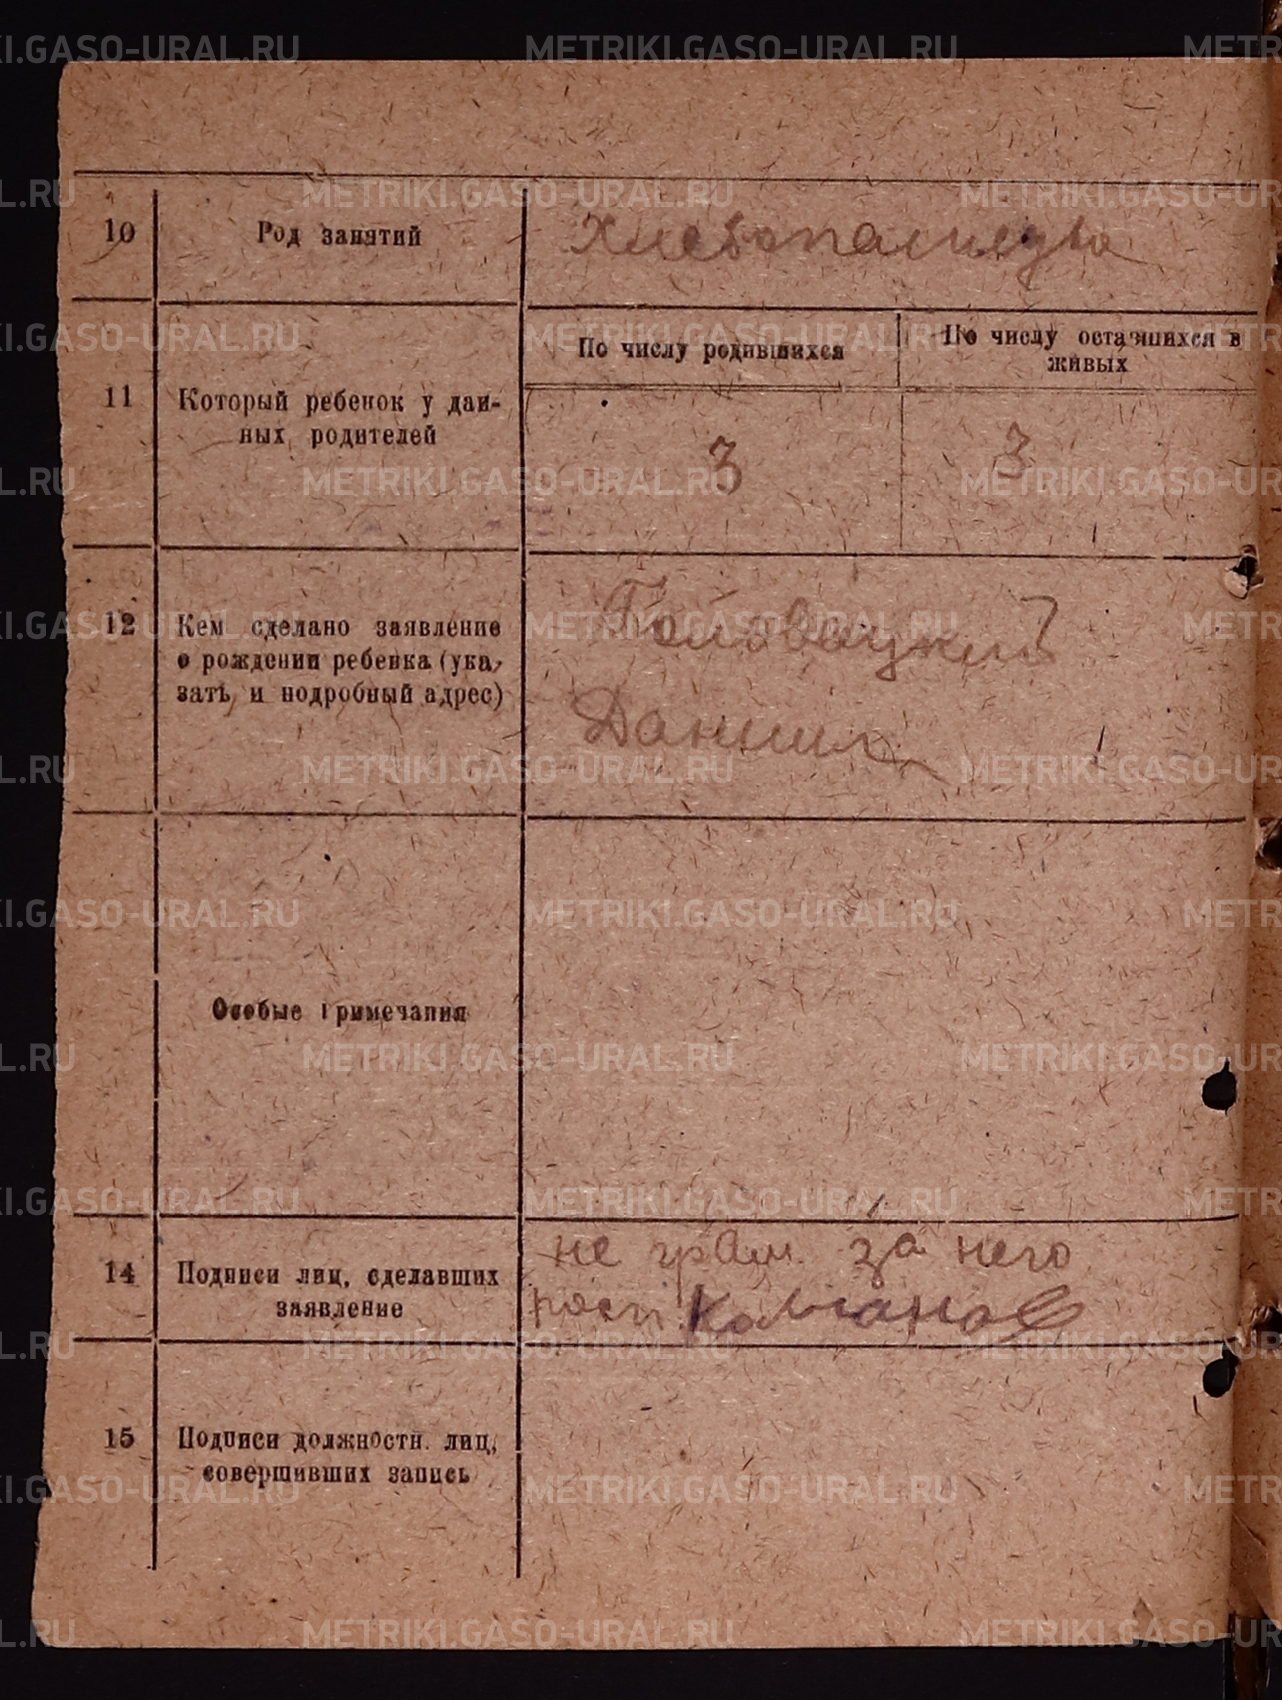 10 Род занятий Хлебопашество
11 Который ребенок у дан-
ных родителей
По числу родившихся
По числу оставшихся в
живых
3 3
12 Кем сделано заявление
о рождении ребенка (ука-
зать и подробный адрес)
Головацкий
Даниил
Особые примечания
14 Подписи лиц, сделавших
заявление
не грам. за него
расп. Колганов
15 Подписи должностн. лиц,
совершивших запись
METRIKI.GASO-URAL.RU